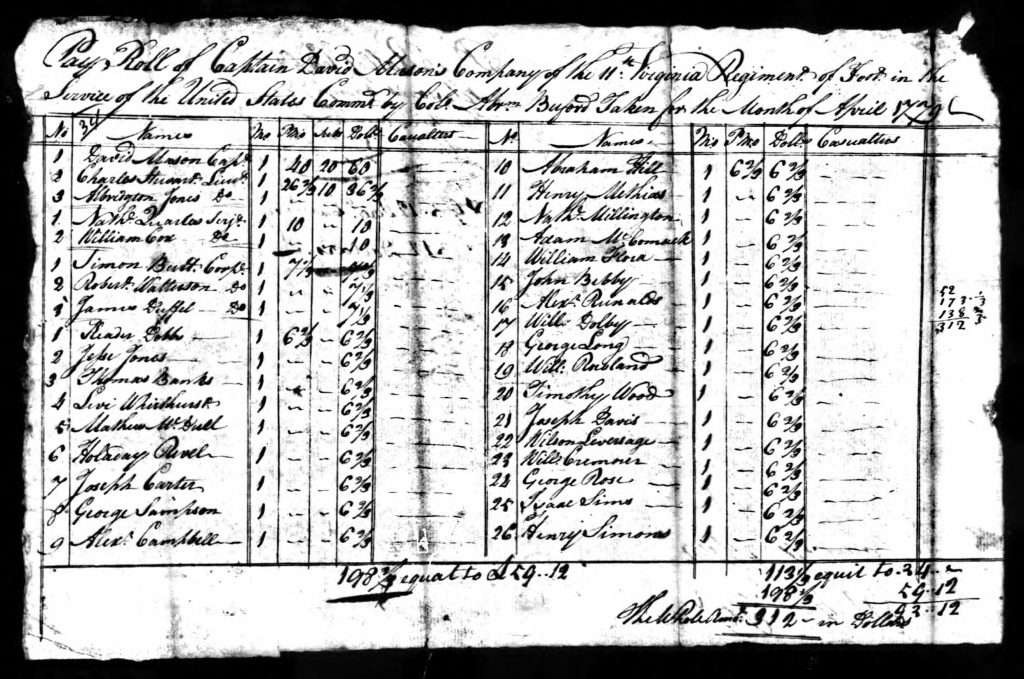 Pay Roll of Captain David Mason's Company of the 11th Virginia Regiment of Foot in the
Service of the United States Commd by Colo Abrm Buford Taken for the Month of April 1779
34
No Names Mo Pr Mo Dolls Casualties
1 David Mason Capt 1 40 20 60
2 Charles Stuart Lieut 1 26 2/3 10 36 2/3
3 Albridgton Jones Do 1
1 Nathl Quarles Serjt 1 10 10
2 William Cox Do 1 10
1 Simon Butt Corpl 1 7 1/3 7 1/3
2 Robert Watterson Do 1 7 1/3
3 James Duffel Do 1 7 1/3
1 Reader Dobbs 1 6 2/3 6 2/3
2 Jesse Jones 1 6 2/3
3 Thomas Banks 1 6 2/3
4 Levi Whirthurst 1 6 2/3
5 Mathew McDull 1 6 2/3
6 Holaday Revel 1 6 2/3
7 Joseph Carter 1 6 2/3
8 George Sampson 1 6 2/3
9 Alexr Campbell 1 6 2/3
198 2/3 equal to £ 59..12
No Names Mo P Mo Dolls Casualties
10 Abraham Hill 1 6 2/3 6 2/3
11 Henry Methias 1 6 2/3
12 Nathl Millington 1 6 2/3
13 Adam McComack 1 6 2/3
14 William Flora 1 6 2/3
15 John Bebby 1 6 2/3
16 Alexr Runalds 1 6 2/3
17 Will Dolby 1 6 2/3
18 George Long 1 6 2/3
19 Will Rowland 1 6 2/3
20 Timothy Wood 1 6 2/3
21 Joseph Davis 1 6 2/3
22 Wilson Leversage 1 6 2/3
23 Will Cremoner 1 6 2/3
24 George Rose 1 6 2/3
25 Isaac Sims 1 6 2/3
26 Henry Simons 1 6 2/3
113 1/3 equil to 34
198 2/3 59.12
93..12
The Whole Amt 312 in Dollars
52
173 1/3
138 2/3
312